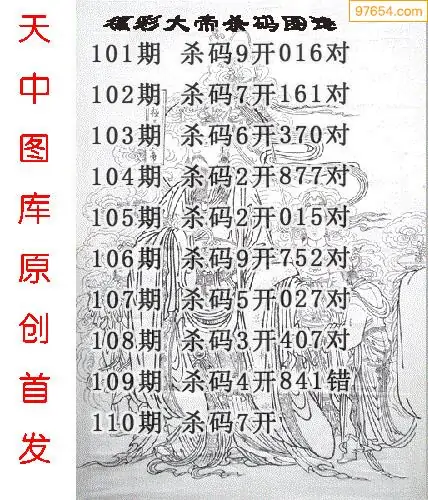 97654.com
福彩大帝杀码图谜
101期 杀码9开016对
102期 杀码7开161对
103期 杀码6开370对
104期 杀码2开877对
105期 杀码2开015对
106期 杀码9开752对
107期 杀码5开027对
108期 杀码3开407对
109期 杀码4开841错
110期 杀码7开
天中图库原创首发